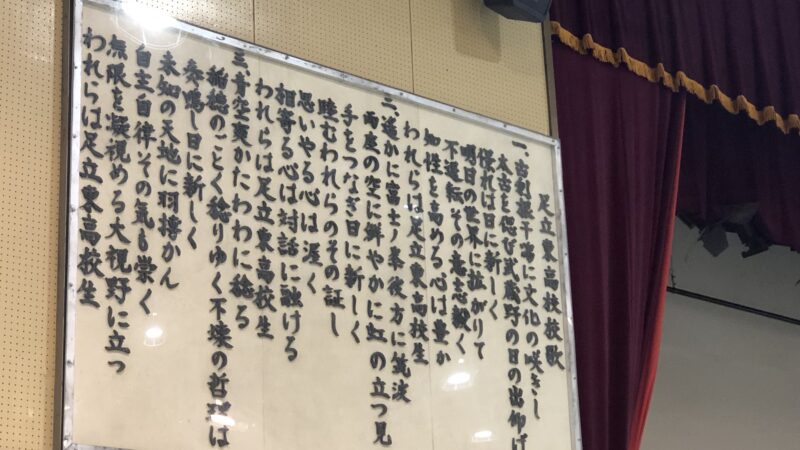 足立東高校校歌
一、古刹根干場に文化の咲きし
太古を偲び武蔵野の日の出仰げ
憧れは日に新しく
明日の世界に拡がりて
不退転その意志毅く
知性を高める心は豊か
われらは足立東高校生
二、遥かに富士ノ条彼方に筑波
両座の空に鮮やかに虹の立つ見
手をつなぎ日に新しく
睦むわれらのその証し
思いやる心は渥く
相寄る心は対話に融ける
われらは足立東高校生
三、青空爽かたわわに稔る
稲穂のごとく稔りゆく不壊の哲理は
飛翔し日に新しく
未知の天地に羽搏かん
自主自律その気も崇く
無限を凝視める大視野に立つ
われらは足立東高校生